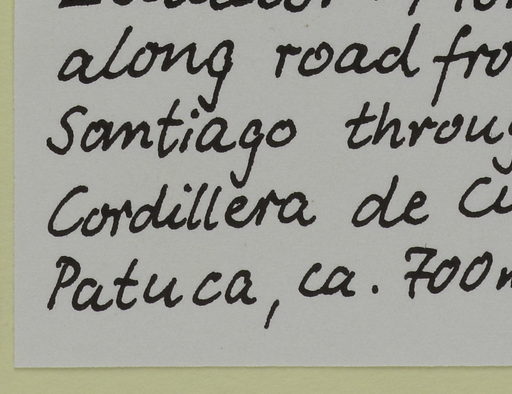 along road fro
Santiago throug
Cordillera de Cu
Patuca, ca. 700m